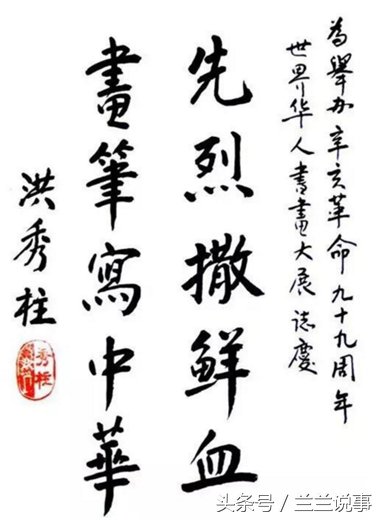 為舉办辛亥革命九十九周年
世界华人書畫大展誌慶
先烈撒鮮血
畫筆寫中華
洪秀柱
头条号／兰兰说事